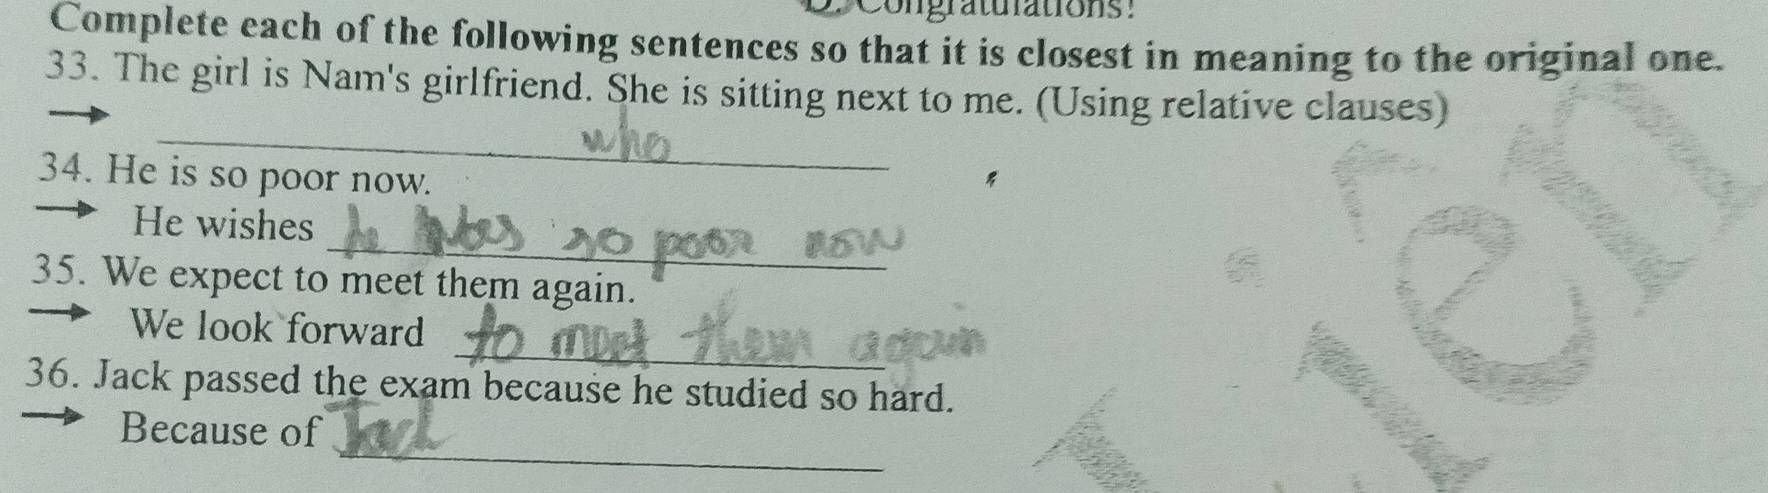 Congratulations!
Complete each of the following sentences so that it is closest in meaning to the original one.
33. The girl is Nam's girlfriend. She is sitting next to me. (Using relative clauses)
→ who
34. He is so poor now.
→ He wishes he so poor now
35. We expect to meet them again.
→ We look forward to meet them again
36. Jack passed the exam because he studied so hard.
→ Because of Jack